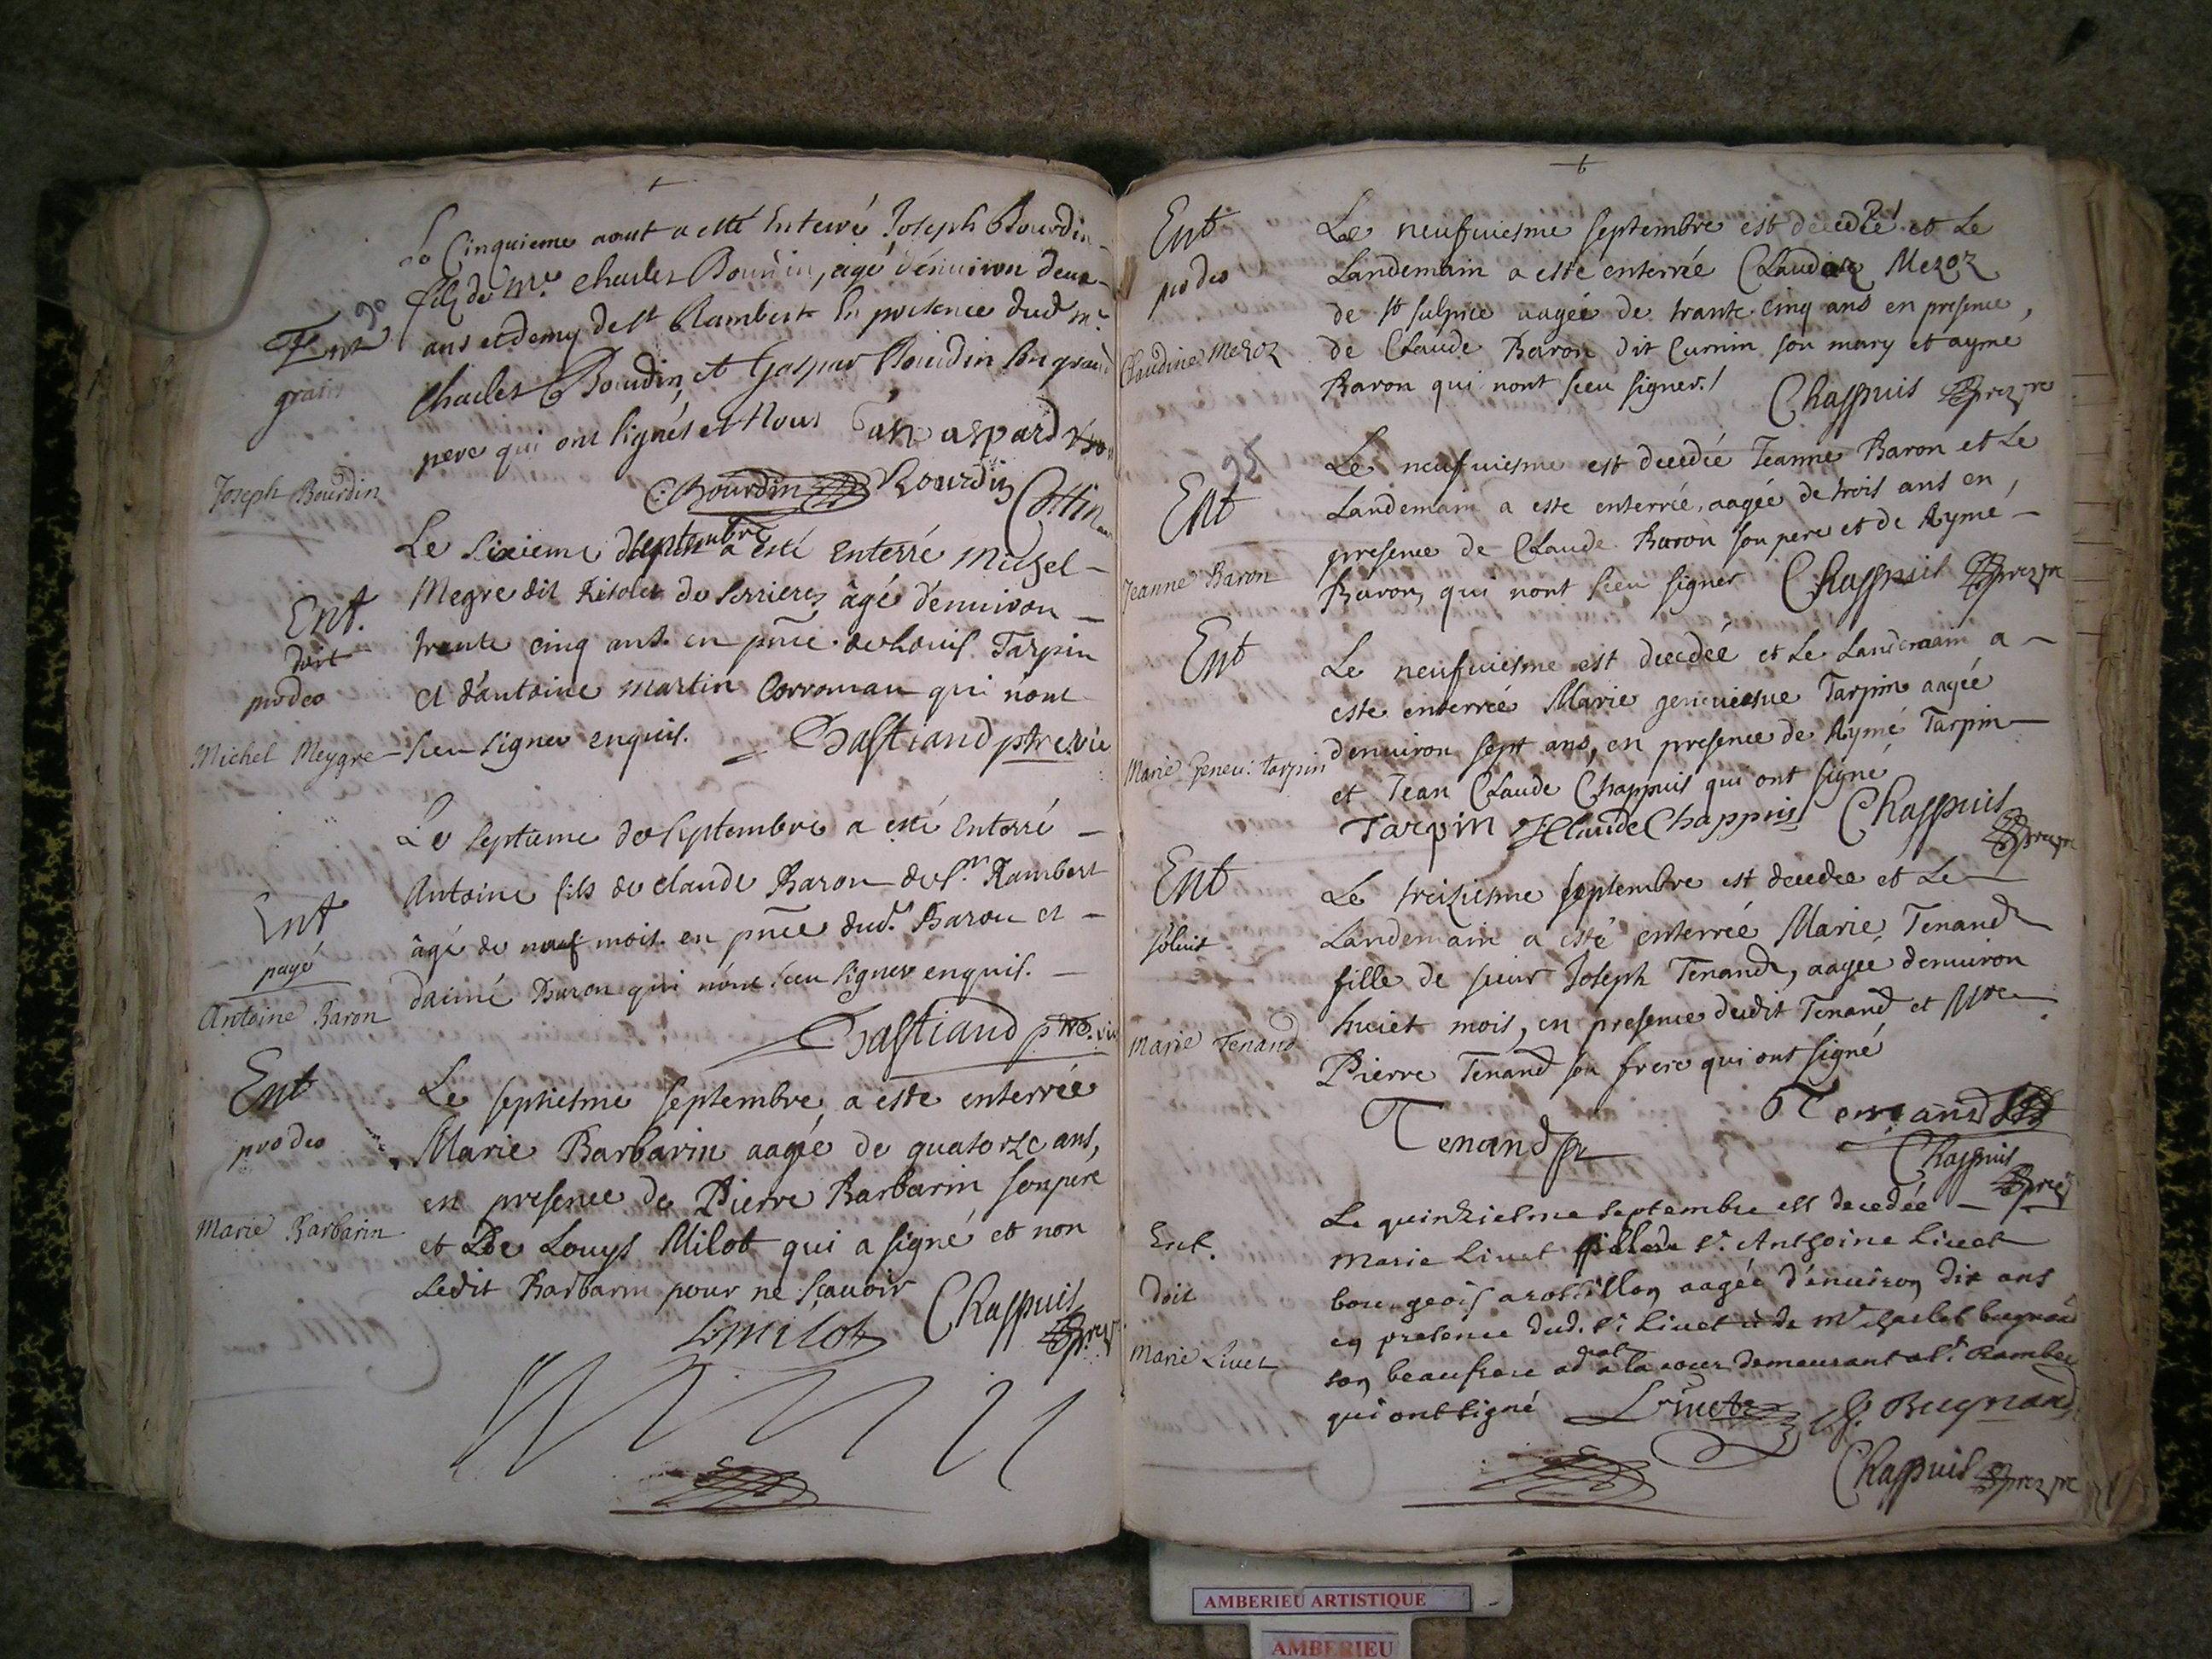 Le Cinquieme aout a esté Enterré Joseph Bourdin
fils de Mre. Charles Bourdin, agé d'enuiron deux
ans et demy de st Rambert En presence dud mr.
Charles Bourdin, et Gaspar Bourdin son grand
pere qui ont signés et Nous
90
Ent
gratis
Joseph Bourdin
C. Bourdin Bourdin Cottin
Le sixieme septembre a esté enterré Michel
Megre dit Risoles de serrieres âgé d'enuiron
trente cinq ans. en pnce. de Louis Tarpin
et d'antoine Martin Corroman qui n'ont
sceu signer enquis. Bastiand ptre vic
Ent.
doit
pro deo
Michel Meygre
Le septieme de septembre a esté Enterré
Antoine fils de claude Baron de st. Rambert
âgé de neuf mois. en pnce dud. Baron et
d'aimé Baron qui n'ont sceu signer enquis.
Bastiand ptre. vic
Ent
payé
Antoine Baron
Le septiesme septembre a este enterrée
Marie Barbarin aagée de quatorze ans,
en presence de Pierre Barbarin son pere
et De Louys Milot qui a signé et non
Ledit Barbarin pour ne sçauoir
L. milot Chappuis
Ent
pro deo
Marie Barbarin
Ent
pro deo
Claudine Mezoz
Le neufuiesme septembre est decedée et Le
Landemain a este enterrée Claudine Mezoz
de st sulpice aagée de trante Cinq ans en presence,
de Claude Baron dit Curnin son mary et aymé
Baron qui nont sceu signer. Chappuis
95
Ent
Jeanne Baron
Le neufuiesme est decedée Jeanne Baron et Le
Landemain a este enterrée, aagée de trois ans en,
presence de Claude Baron son pere et de Aymé
Baron, qui nont sceu signer Chappuis
Ent
Marie Geneu: tarpin
Le neufuiesme est decedée et Le Landemain a
este enterrée Marie geneuiesue Tarpin aagée
denuiron sept ans, en presence de Aymé Tarpin
et Jean Claude Chappuis qui ont signé
Tarpin J Claude Chappuis Chappuis
Ent
soluit
Marie Tenand
Le treiziesme septembre est decedee et Le
Landemain a esté enterrée Marie Tenand
fille de sieur Joseph Tenand, aagée denuiron
huict mois, en presence dudit Tenand et Mre
Pierre Tenand son frere qui ont signé
Tenand Tenand
Chappuis
Ent.
Doit
Marie Liuet
Le quinziesme septembre est decedée
Marie Liuet fille de sr. Anthoine Liuet
bourgeois a rossillon aagée d'enuiron dix ans
en presence dud. sr. Liuet et de Mr charles bugnand
son beaufrere adcat a la cour demeurant a st. Rambert
qui ont signé Liuet C. Bugnand
Chappuis
AMBERIEU ARTISTIQUE
AMBERIEU